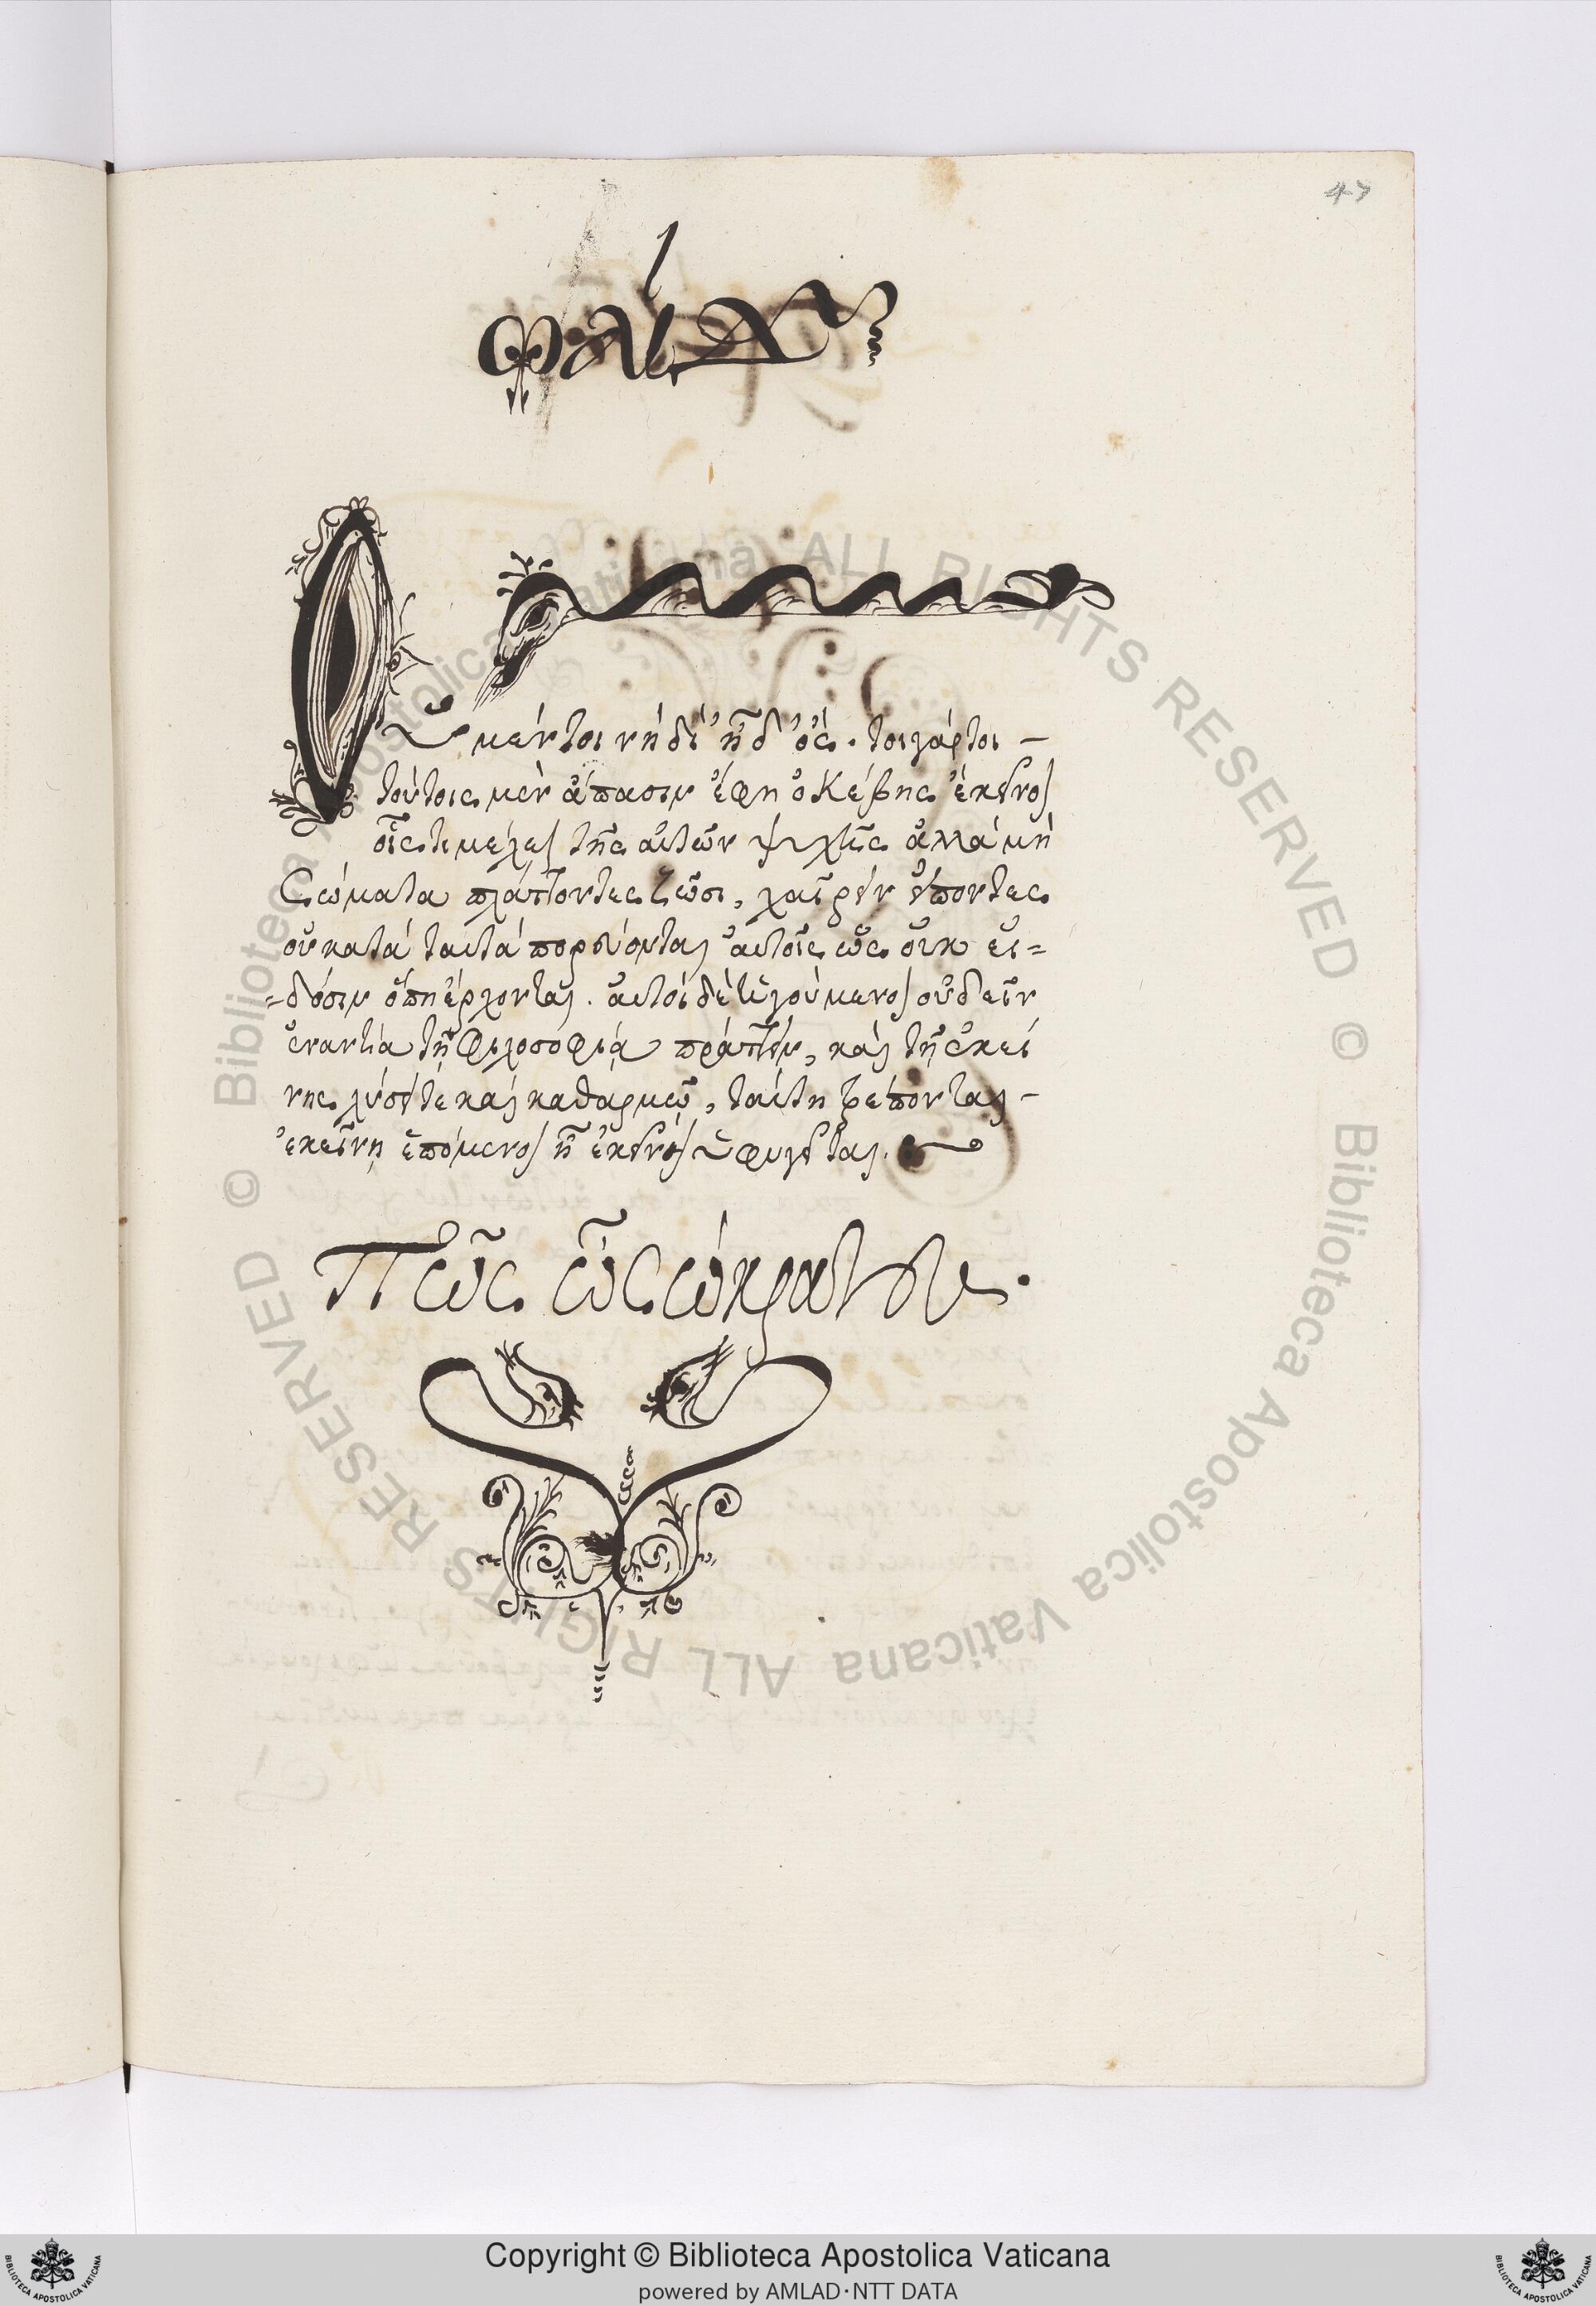 47
φαίδων
Οὐ μέντοι νὴ δί' ἦ δ' ὅς. τοιγάρτοι –
τούτοις μὲν ἅπασιν ἔφη ὁ Κέβης ἐκεῖνοι
οἷς τι μέλει τῆς αὐτῶν ψυχῆς ἀλλὰ μὴ
σώματα πλάττοντες ζῶσι, χαίρειν εἰπόντες
οὐ κατὰ ταυτὰ πορεύονται αὐτοῖς ὡς οὐκ εἰ=
=δόσιν ὅπη ἔρχονται. αὐτοὶ δὲ ἡγούμενοι οὐ δεῖν
ἐναντία τῇ φιλοσοφίᾳ πράττειν, καὶ τῇ ἐκεί
νης λύσει τε καὶ καθαρμῷ, ταύτῃ τρέπονται –
ἐκείνῃ ἑπόμενοι ᾗ ἐκείνη ὑφηγεῖται.
Πῶς ὦ σώκρατες.
Copyright © Biblioteca Apostolica Vaticana
powered by AMLAD·NTT DATA
© Biblioteca Apostolica Vaticana ALL RIGHTS RESERVED © Biblioteca Apostolica Vaticana ALL RIGHTS RESERVED